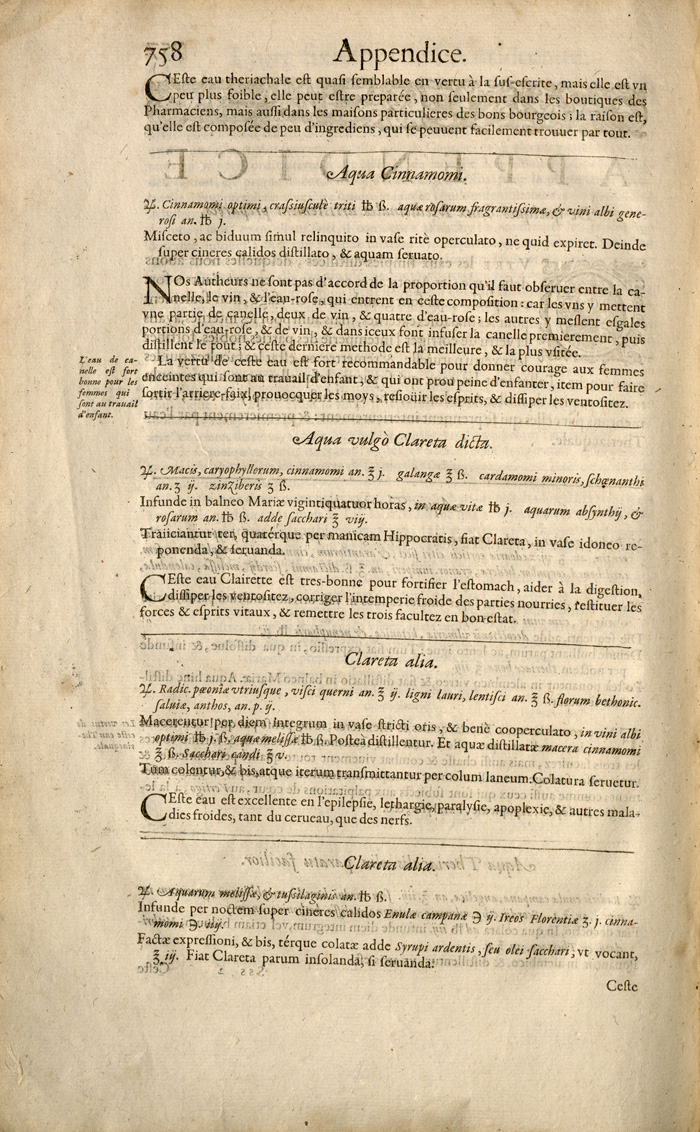 758 Appendice.
CEste eau theriachale est quasi semblable en vertu à la sus-escrite, mais elle est vn
peu plus foible, elle peut estre preparée, non seulement dans les boutiques des
Pharmaciens, mais aussi dans les maisons particulieres des bons bourgeois; la raison est,
qu'elle est composée de peu d'ingrediens, qui se peuuent facilement trouuer par tout.
Aqua Cinnamomi.
♃. Cinnamomi optimi, crassiusculè triti ℔ ß. aquæ rosarum fragrantissimæ, & vini albi gene-
rosi an. ℔ j.
Misceto, ac biduum simul relinquito in vase ritè operculato, ne quid expiret. Deinde
super cineres calidos distillato, & aquam seruato.
NOs Autheurs ne sont pas d'accord de la proportion qu'il faut obseruer entre la ca-
nelle, le vin, & l'eau-rose, qui entrent en ceste composition: car les vns y mettent
vne partie de canelle, deux de vin, & quatre d'eau-rose; les autres y meslent esgales
portions d'eau-rose, & de vin, & dans iceux font infuser la canelle premierement, puis
distillent le tout; & ceste derniere methode est la meilleure, & la plus vsitée.
L'eau de ca-
nelle est fort
bonne pour les
femmes qui
sont au trauail
d'enfant.
La vertu de ceste eau est fort recommandable pour donner courage aux femmes
enceintes qui sont au trauail d'enfant, & qui ont prou peine d'enfanter, item pour faire
sortir l'arriere-faix, prouocquer les moys, resiouir les esprits, & dissiper les ventositez.
Aqua vulgò Clareta dicta.
♃. Macis, caryophyllorum, cinnamomi an. ℥ j. galangæ ℥ ß. cardamomi minoris, schœnanthi
an. ʒ ij. zinziberis ʒ ß.
Infunde in balneo Mariæ vigintiquatuor horas, in aquæ vitæ ℔ j. aquarum absynthij, &
rosarum an. ℔ ß. adde sacchari ℥ viij.
Traiiciantur ter, quatérque per manicam Hippocratis, fiat Clareta, in vase idoneo re-
ponenda, & seruanda.
CEste eau Clairette est tres-bonne pour fortifier l'estomach, aider à la digestion,
dissiper les ventositez, corriger l'intemperie froide des parties nourries, restituer les
forces & esprits vitaux, & remettre les trois facultez en bon estat.
Clareta alia.
♃. Radic. pæoniæ vtriusque, visci querni an. ℥ ij. ligni lauri, lentisci an. ℥ ß. florum bethonic.
saluiæ, anthos, an. p. ij.
Macerentur per diem integrum in vase stricti oris, & benè cooperculato, in vini albi
optimi ℔ j. ß. aquæ melissæ ℔ ß. Posteà distillentur. Et aquæ distillatæ macera cinnamomi
℥ ß. Sacchari candi ℥ v.
Tum colentur, & bis, atque iterum transmittantur per colum laneum. Colatura seruetur.
CEste eau est excellente en l'epilepsie, lethargie, paralysie, apoplexie, & autres mala-
dies froides, tant du cerueau, que des nerfs.
Clareta alia.
♃. Aquarum melissæ, & tussilaginis an. ℔ ß.
Infunde per noctem super cineres calidos Enulæ campanæ ℈ ij. Ireos Florentiæ ʒ. j. cinna-
momi ℈. iiij.
Factæ expressioni, & bis, térque colatæ adde Syrupi ardentis, seu olei sacchari, vt vocant,
℥ iij. Fiat Clareta parum insolanda, si seruanda.
Ceste